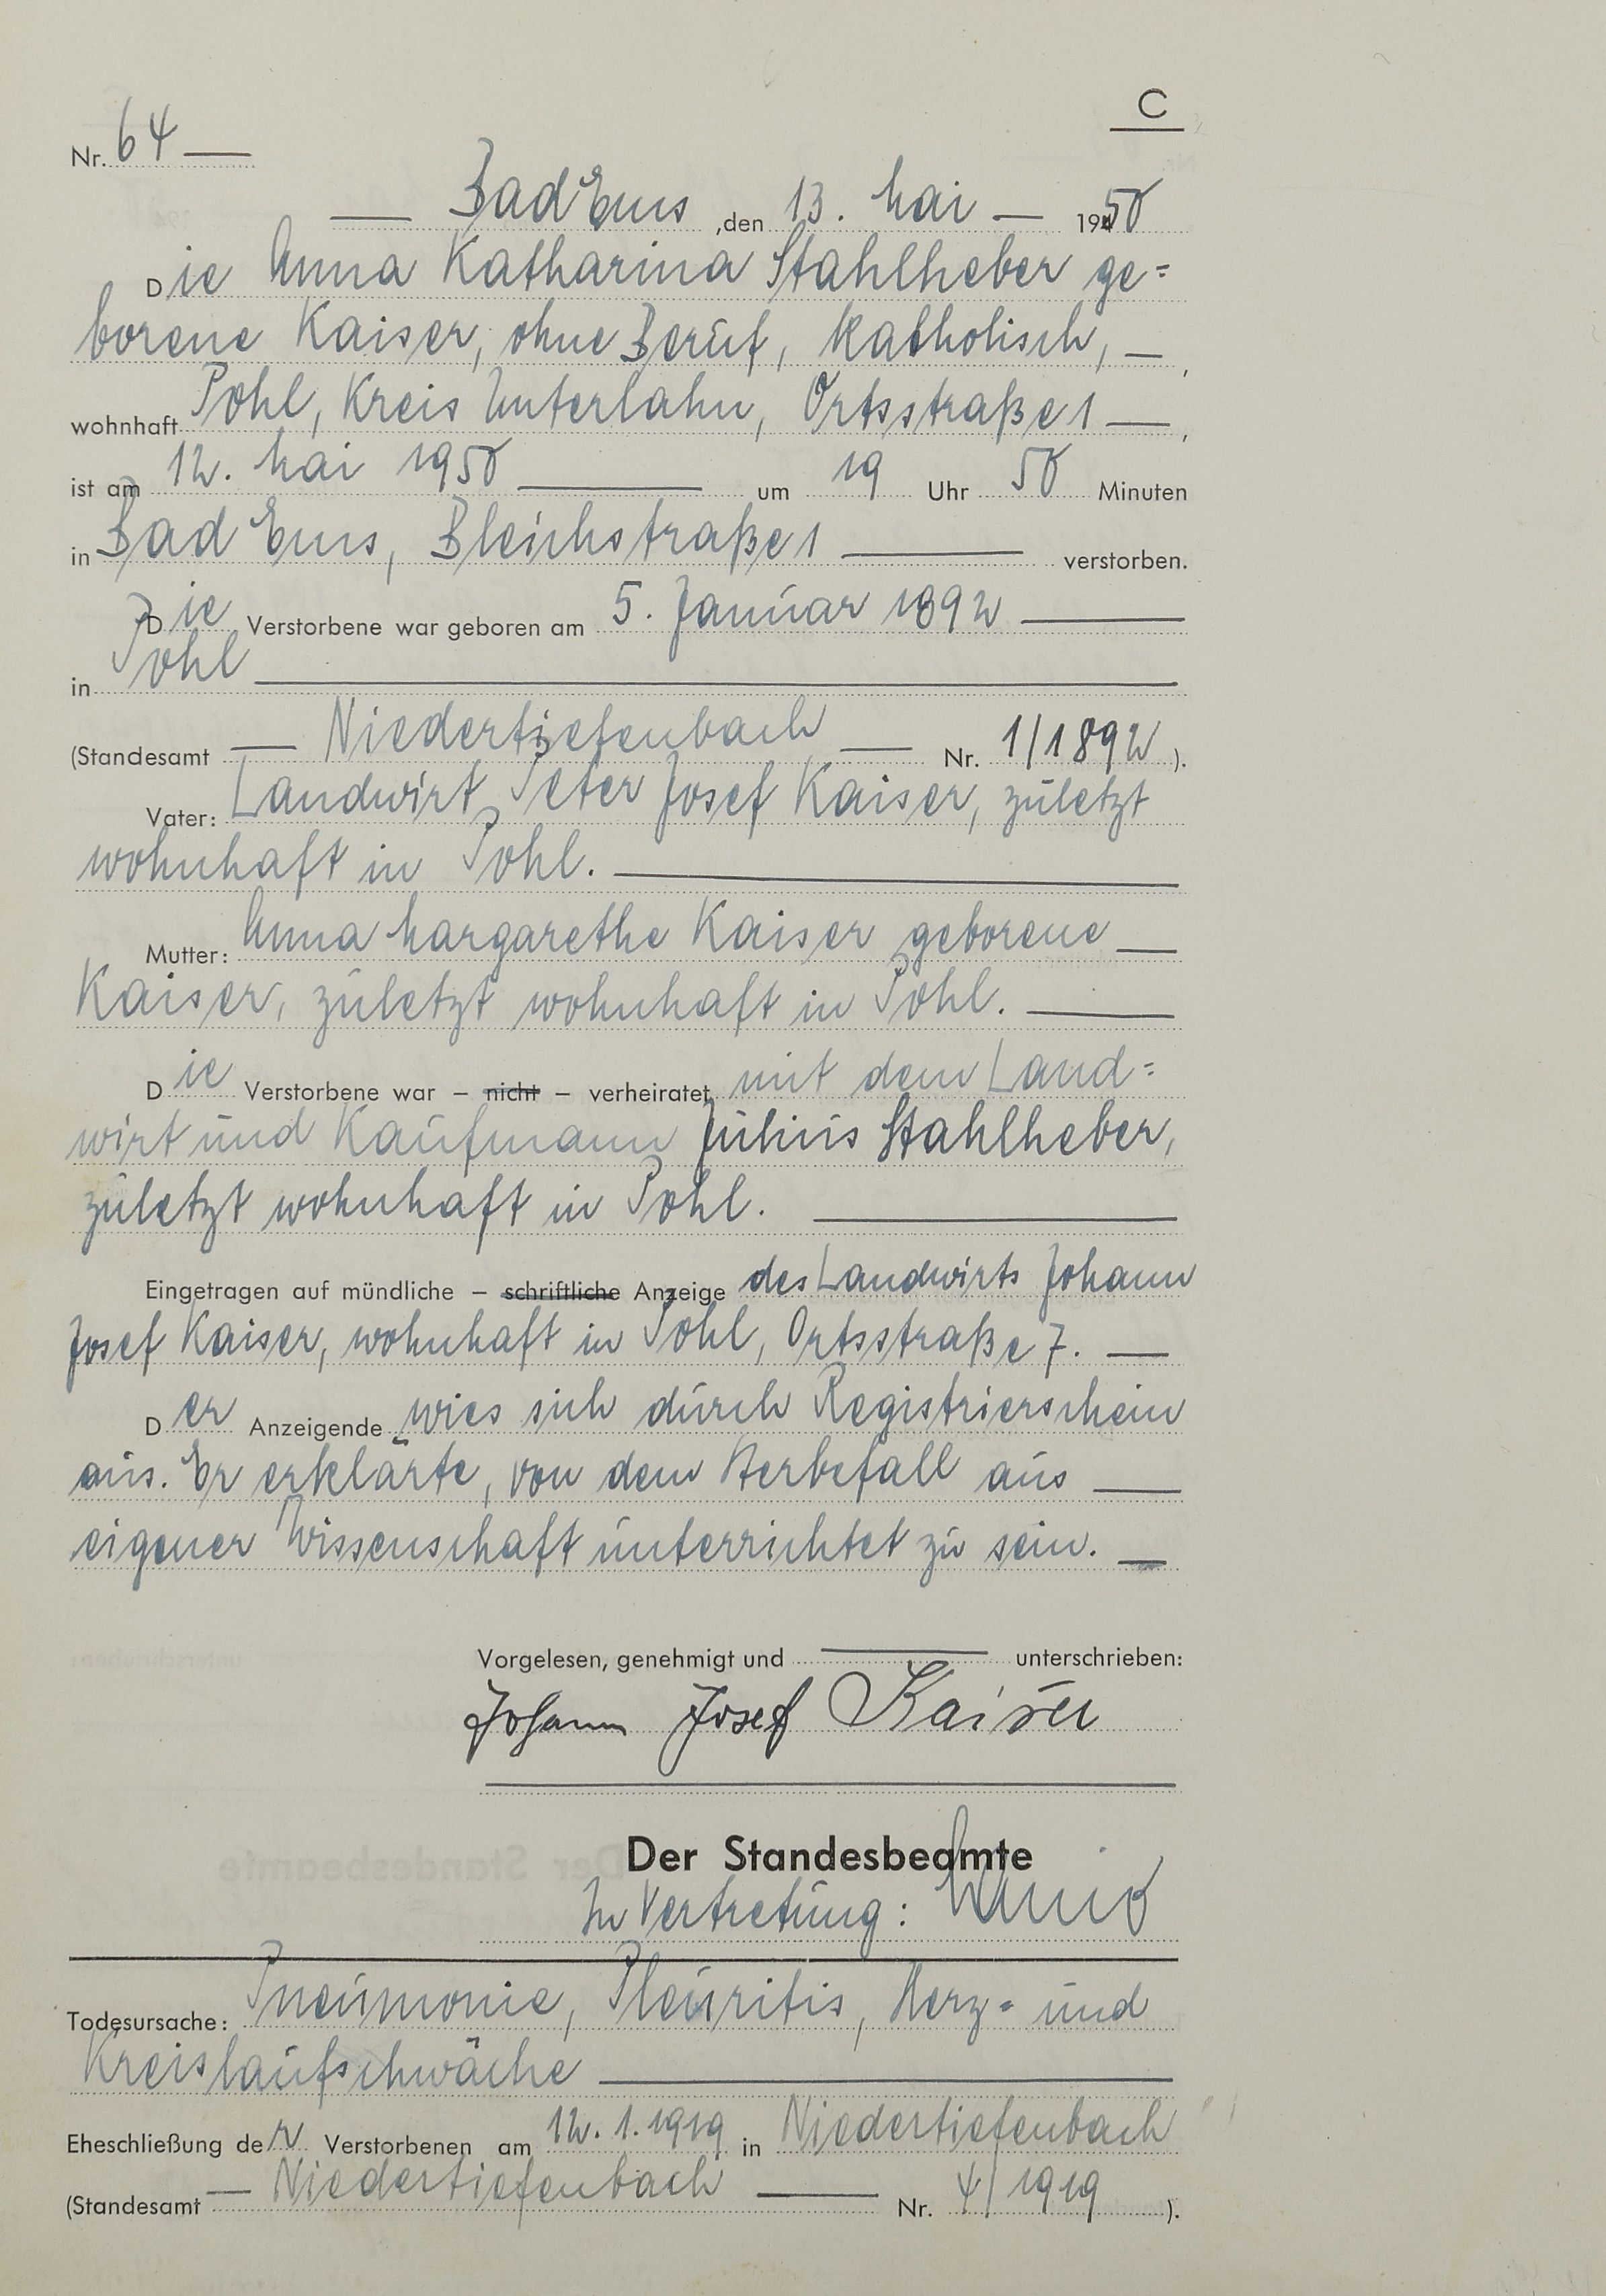 C
Nr. 64
Bad Ems, den 13. Mai 1950
Die Anna Katharina Stahlheber ge=
borene Kaiser, ohne Beruf, katholisch,
wohnhaft Pohl, Kreis Unterlahn, Ortsstraße 1,
ist am 12. Mai 1950 um 19 Uhr 50 Minuten
in Bad Ems, Bleichstraße 1 verstorben.
Die Verstorbene war geboren am 5. Januar 1892
in Pohl
(Standesamt Niedertiefenbach Nr. 1/1892).
Vater: Landwirt Peter Josef Kaiser, zuletzt
wohnhaft in Pohl.
Mutter: Anna Margarethe Kaiser geborene
Kaiser, zuletzt wohnhaft in Pohl.
Die Verstorbene war – nicht – verheiratet mit dem Land=
wirt und Kaufmann Julius Stahlheber,
zuletzt wohnhaft in Pohl.
Eingetragen auf mündliche – schriftliche Anzeige des Landwirts Johann
Josef Kaiser, wohnhaft in Pohl, Ortsstraße 7.
Der Anzeigende wies sich durch Registrierschein
aus. Er erklärte, von dem Sterbefall aus
eigener Wissenschaft unterrichtet zu sein.
Vorgelesen, genehmigt und unterschrieben:
Johann Josef Kaiser
Der Standesbeamte
In Vertretung:
Todesursache: Pneumonie, Pleuritis, Herz= und
Kreislaufschwäche
Eheschließung der Verstorbenen am 12. 1. 1919 in Niedertiefenbach
(Standesamt Niedertiefenbach Nr. 4/1919).